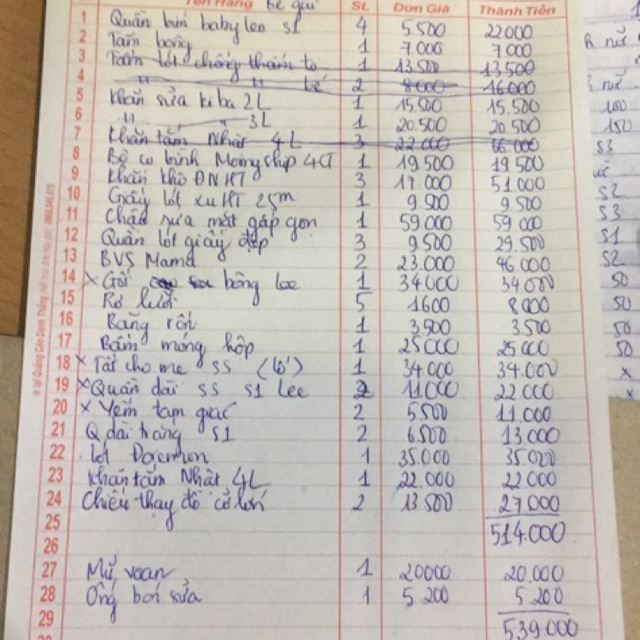 Tên Hàng bé gái SL Đơn Giá Thành Tiền
1 Quần bỉm babyleo S1 4 5500 22000
2 Tăm bông 1 7.000 7.000
3 Tấm lót chống thấm to 1 13.500 13.500
4 " " bé 2 8000 16.000
5 Khăn sữa kiba 2L 1 15.500 15.500
6 " 3L 1 20.500 20.500
7 Khăn tắm Nhật 4L 3 22.000 66.000
8 Bộ cọ bình 4CT 1 19.500 19.500
9 Khăn khô ĐNHT 3 17.000 51.000
10 Giấy lót xu HT 1 9.500 9.500
11 Chậu rửa mặt gấp gọn 1 59000 59.000
12 Quần lót giấy đẹp 3 9500 29.500
13 BVS Mama 2 23.000 46.000
14 x Gối bông lee 1 34000 34000
15 Rơ lưỡi 5 1600 8000
16 Băng rốn 1 3500 3500
17 Bấm móng hộp 1 25000 25000
18 x Tất cho mẹ SS 1 34.000 34.000
19 x Quần dài SS S1 Lee 2 11000 22.000
20 x Yếm tam giác 2 5500 11.000
21 Q dài trắng S1 2 6.500 13000
22 Lót Doremon 1 35.000 35.000
23 Khăn tắm Nhật 4L 1 22.000 22000
24 Chiếu thay đồ cỡ lớn 2 13 500 27.000
25 514.000
26
27 Mũ voan 1 20000 20.000
28 Ống bón sữa 1 5.200 5.200
29 539.000